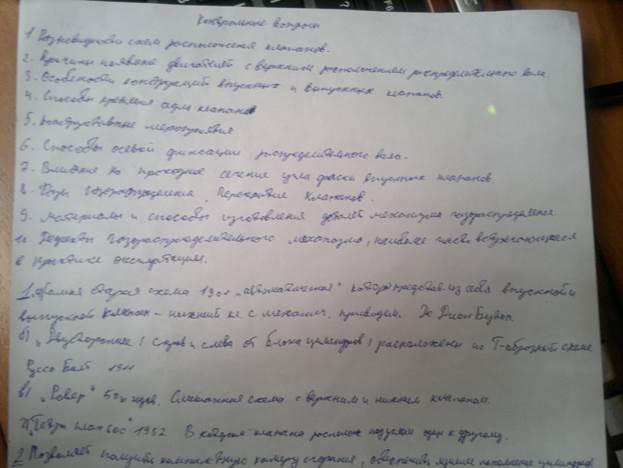 Контрольные вопросы
1. Разновидности схем расположения клапанов.
2. Причины появления двигателей с верхним расположением распределительного вала.
3. Особености конструкций впускных и выпускных клапанов.
4. Способы крепления седла клапанов
5. мероприятия
6. Способы осевой фиксации распределительного вала.
7. Влияния на проходное сечение угла фаски впускных клапанов
8. Фазы газораспределения. Перекрытие клапанов.
9. Материалы и способы изготовления деталей механизма газораспределения.
10. Дефекты газораспределительного механизма, наиболее часто встречающиеся
в практике эксплуатации.
1. Самая старая схема 1901 "автоматическая" из себя впускной и
выпускной клапан - нижний с механич. приводом. Де Дион Бутон
б) "Двустороннее" справа и слева от блока цилиндров расположены по Т-образной схеме
1911
в) "Ровер" 50х годов. Смешанная схема с верхним и нижним клапаном.
1952 В каждом клапана под углом один к другому.
2 Позволяет получить компактную камеру сгорания, обеспечить лучшее наполнение цилиндров